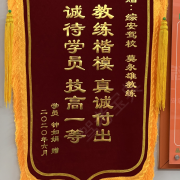 赠：综安驾校 莫永雄教练
教练楷模 真诚付出
诚待学员 技高一等
学员 钟如娟 赠
二〇二〇年六月